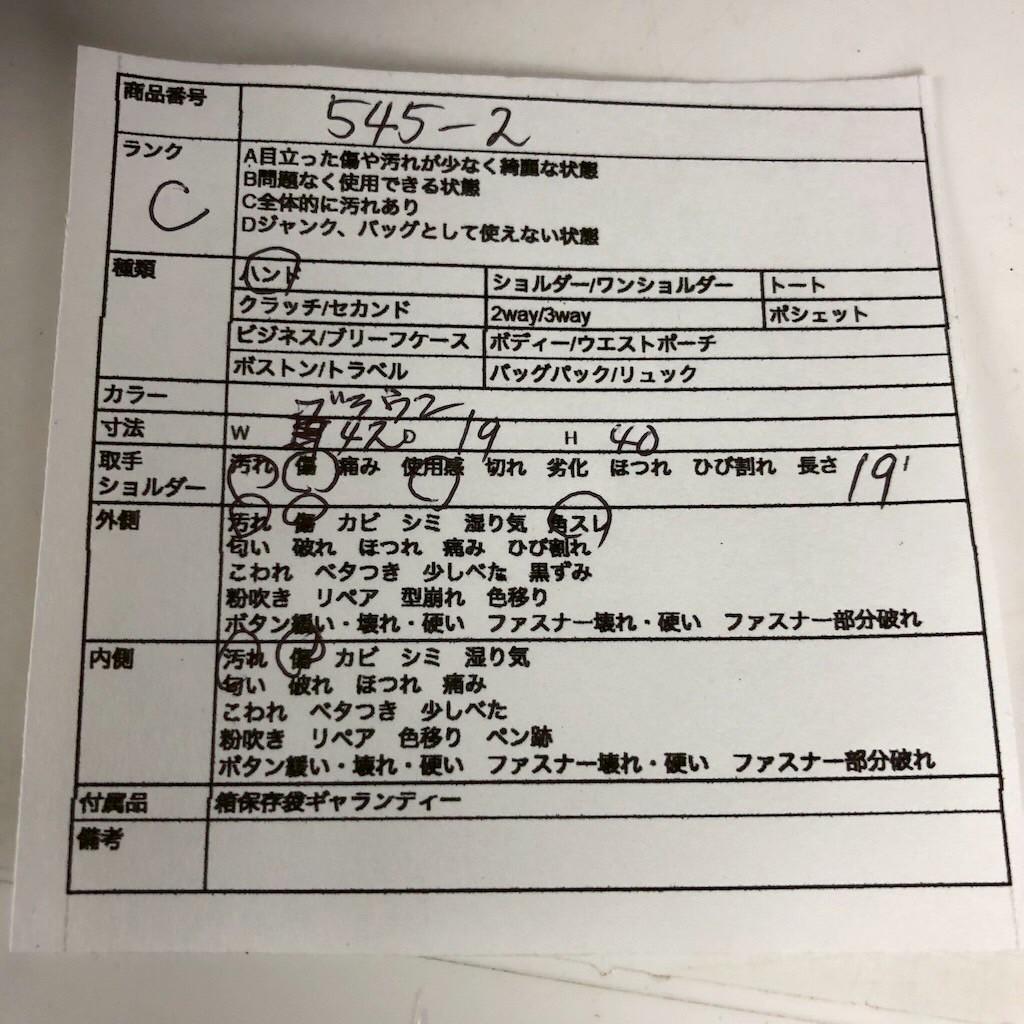 商品番号 545-2
ランク C
A目立った傷や汚れが少なく綺麗な状態
B問題なく使用できる状態
C全体的に汚れあり
Dジャンク、バッグとして使えない状態
種類 ハンド ショルダー/ワンショルダー トート
クラッチ/セカンド 2way/3way ポシェット
ビジネス/ブリーフケース ボディー/ウエストポーチ
ボストン/トラベル バッグパック/リュック
カラー ブラウン
寸法 W 42 D 19 H 40
取手 汚れ 傷 痛み 使用感 切れ 劣化 ほつれ ひび割れ 長さ 19
ショルダー
外側 汚れ 傷 カビ シミ 湿り気 角スレ
匂い 破れ ほつれ 痛み ひび割れ
こわれ ベタつき 少しべた 黒ずみ
粉吹き リペア 型崩れ 色移り
ボタン緩い・壊れ・硬い ファスナー壊れ・硬い ファスナー部分破れ
内側 汚れ 傷 カビ シミ 湿り気
匂い 破れ ほつれ 痛み
こわれ ベタつき 少しべた
粉吹き リペア 色移り ペン跡
ボタン緩い・壊れ・硬い ファスナー壊れ・硬い ファスナー部分破れ
付属品 箱保存袋ギャランティー
備考